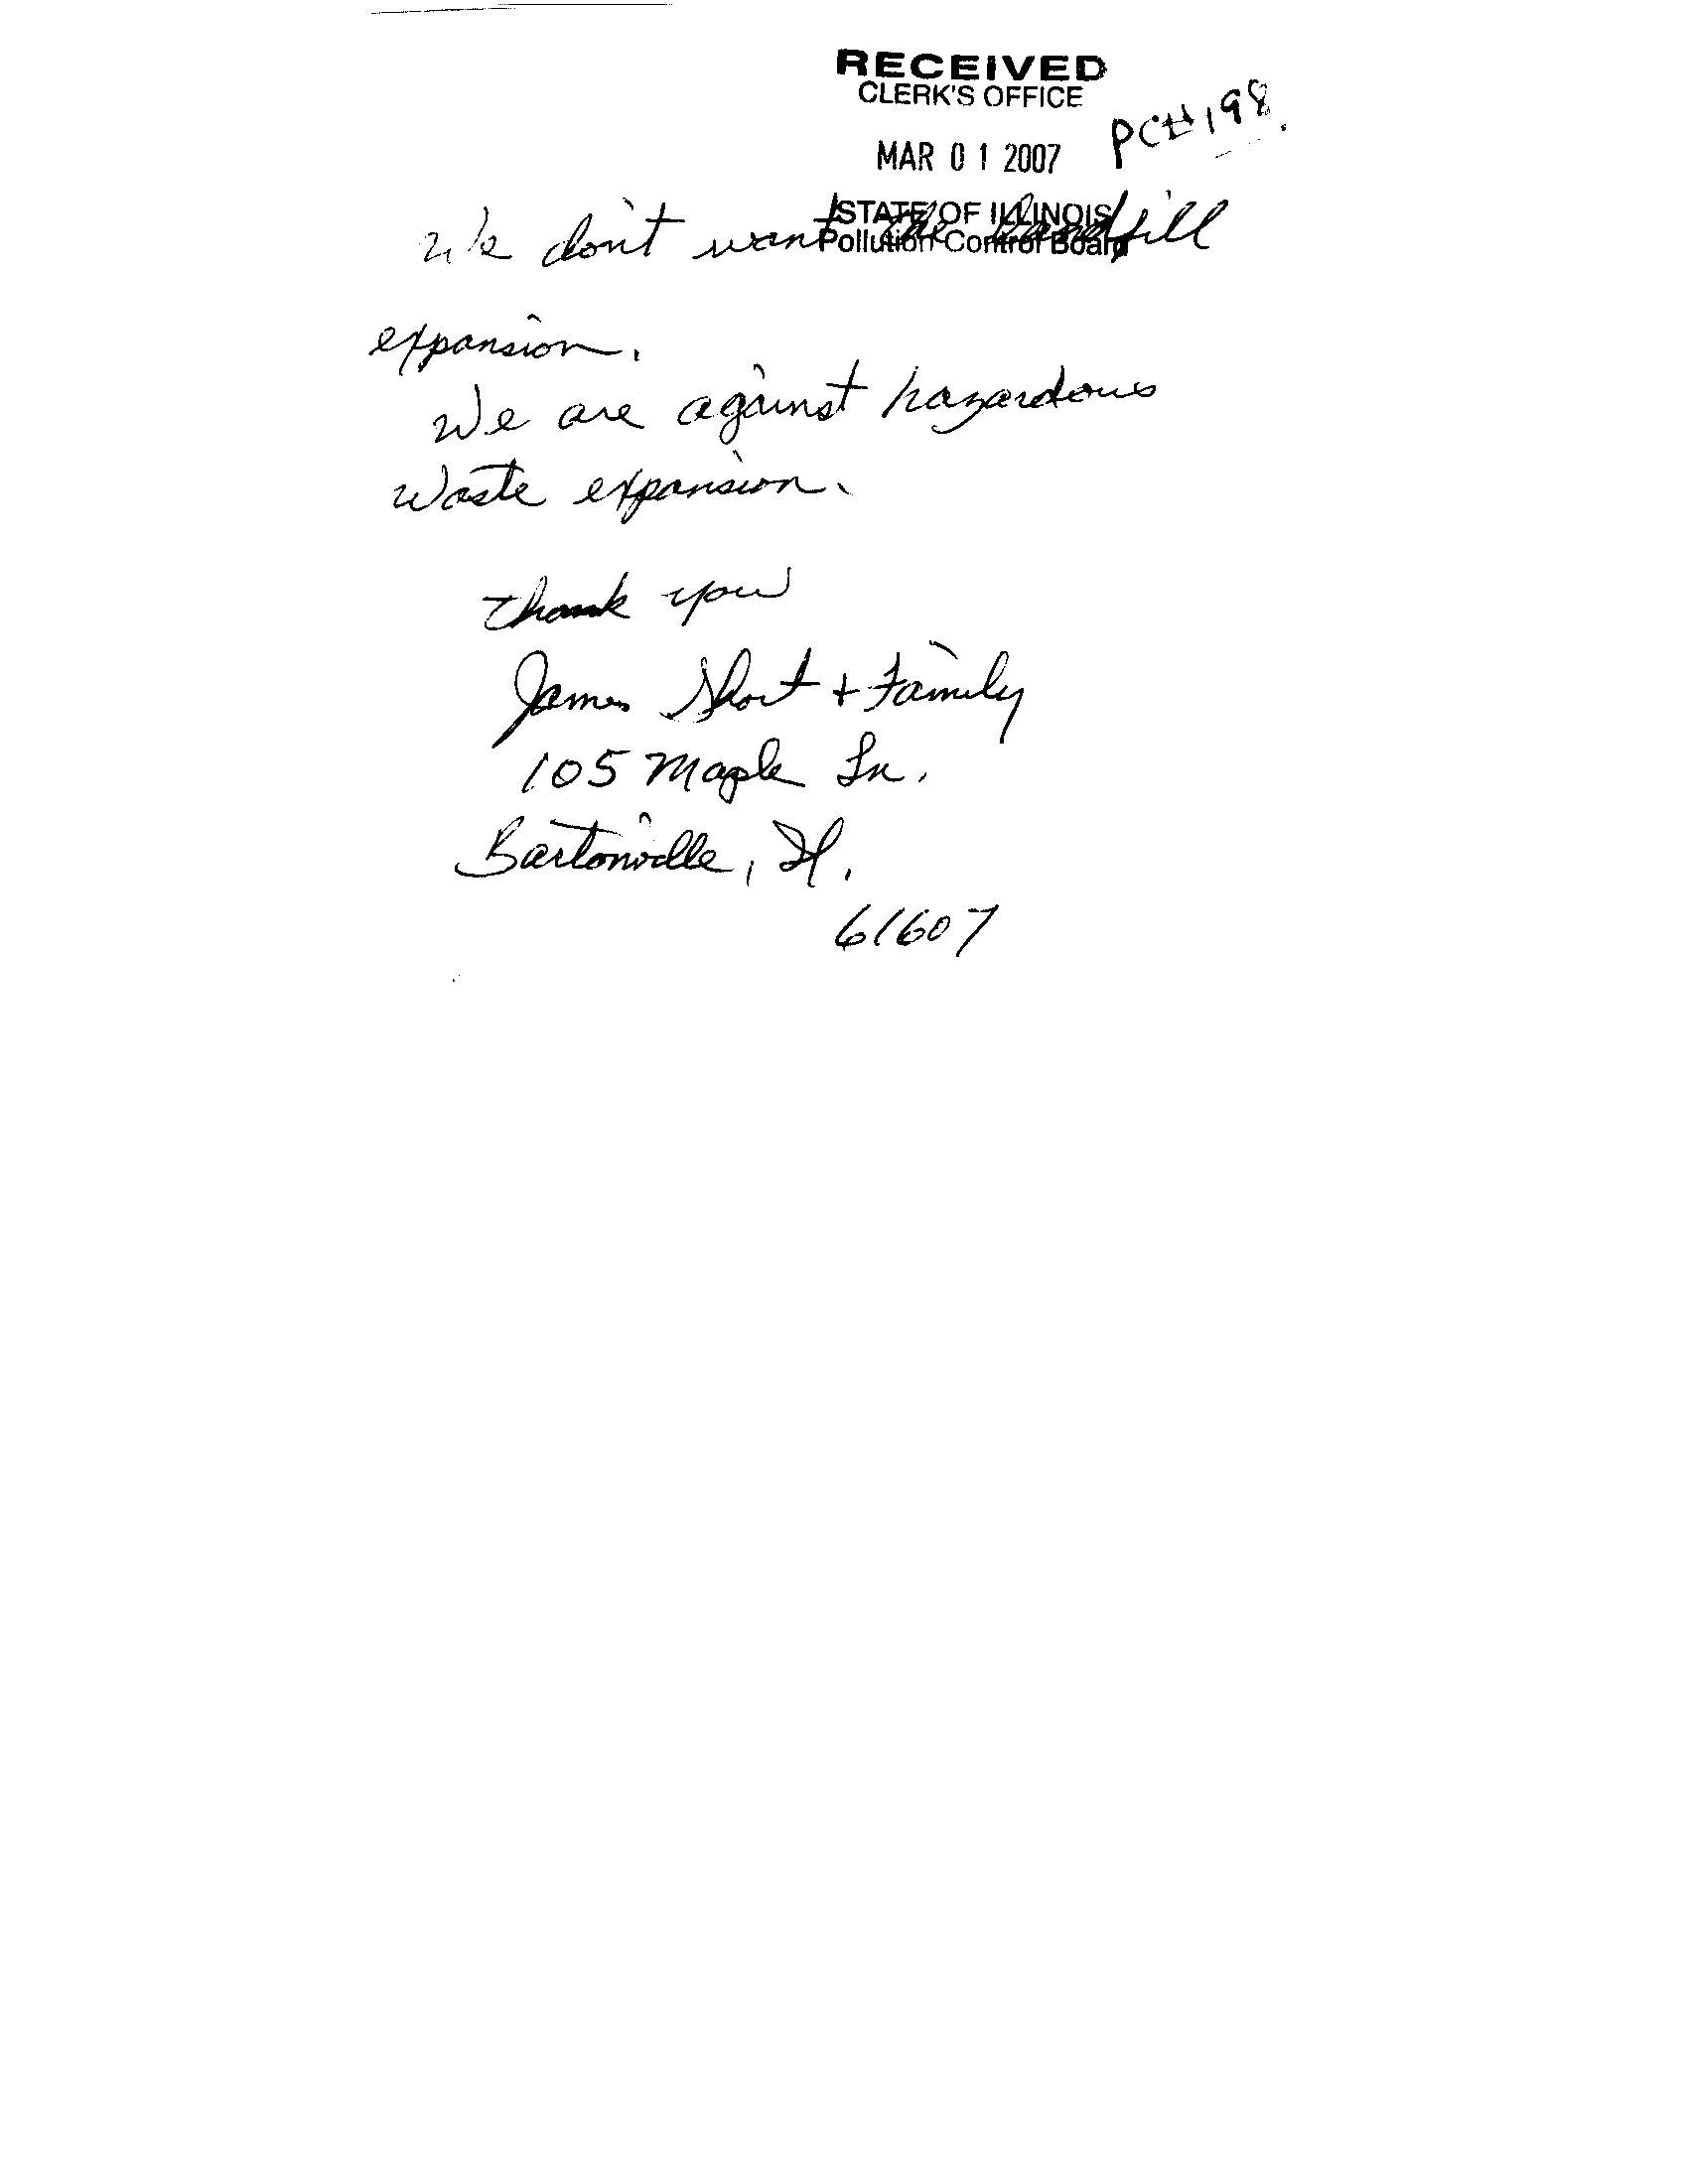 RECEIVED
CLERK'S OFFICE
MAR 01 2007
PC#198
STATE OF ILLINOIS
Pollution Control Board
We don't want the landfill
expansion.
We are against hazardous
waste expansion.
Thank you
James Short + Family
105 Maple Ln.
Bartonville, Il.
61607